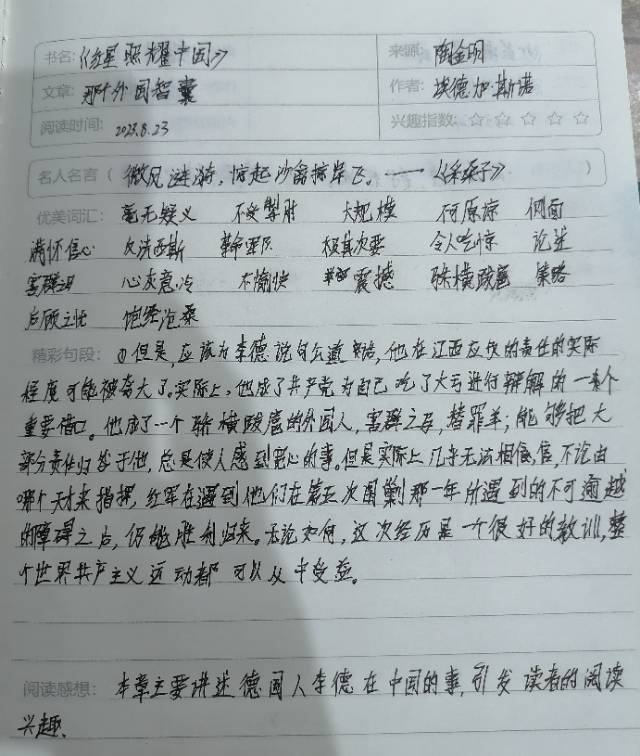 书名:《红星照耀中国》 来源: 陶金明
文章: 那个外国智囊 作者: 埃德加·斯诺
阅读时间: 2023.8.23 兴趣指数: ☆ ☆ ☆ ☆ ☆
名人名言( 微风涟漪,惊起沙禽掠岸飞。——《采桑子》 )
优美词汇: 毫无疑义 不受掣肘 大规模 何原谅 侧面
满怀信心 反法西斯 革命军队 极其次要 令人吃惊 论述
害群之马 心灰意冷 不愉快 震撼 骄横跋扈 策略
后顾之忧 饱经沧桑
精彩句段: ①但是,应该为李德说句公道话,他在江西应负的责任的实际
程度可能被夸大了。实际上,他成了共产党为自己吃了大亏进行辩解的一个
重要借口。他成了一个骄横跋扈的外国人,害群之马,替罪羊;能够把大
部分责任归咎于他,总是使人感到宽心的事。但是实际上几乎无法相信,不论由
哪个天才来指挥,红军在遇到他们在第五次围剿那一年所遇到的不可逾越
的障碍之后,仍能胜利归来。无论如何,这次经历是一个很好的教训,整
个世界共产主义运动都可以从中受益。
阅读感想: 本章主要讲述德国人李德在中国的事,引发读者的阅读
兴趣、